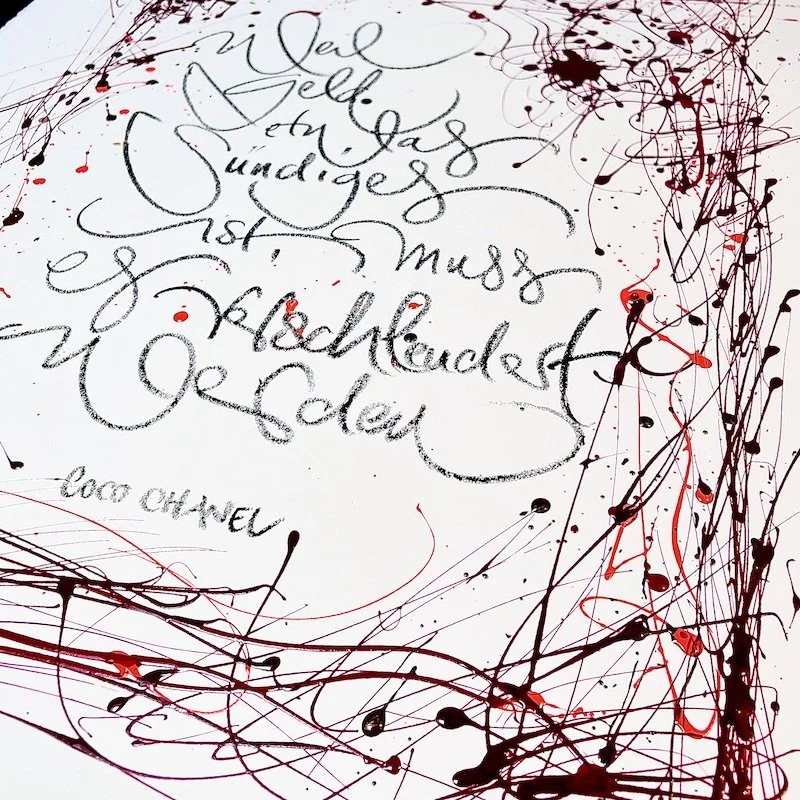 Weil
Geld
etwas
Sündiges
ist, muss
es verschleudert
werden
COCO CHANEL